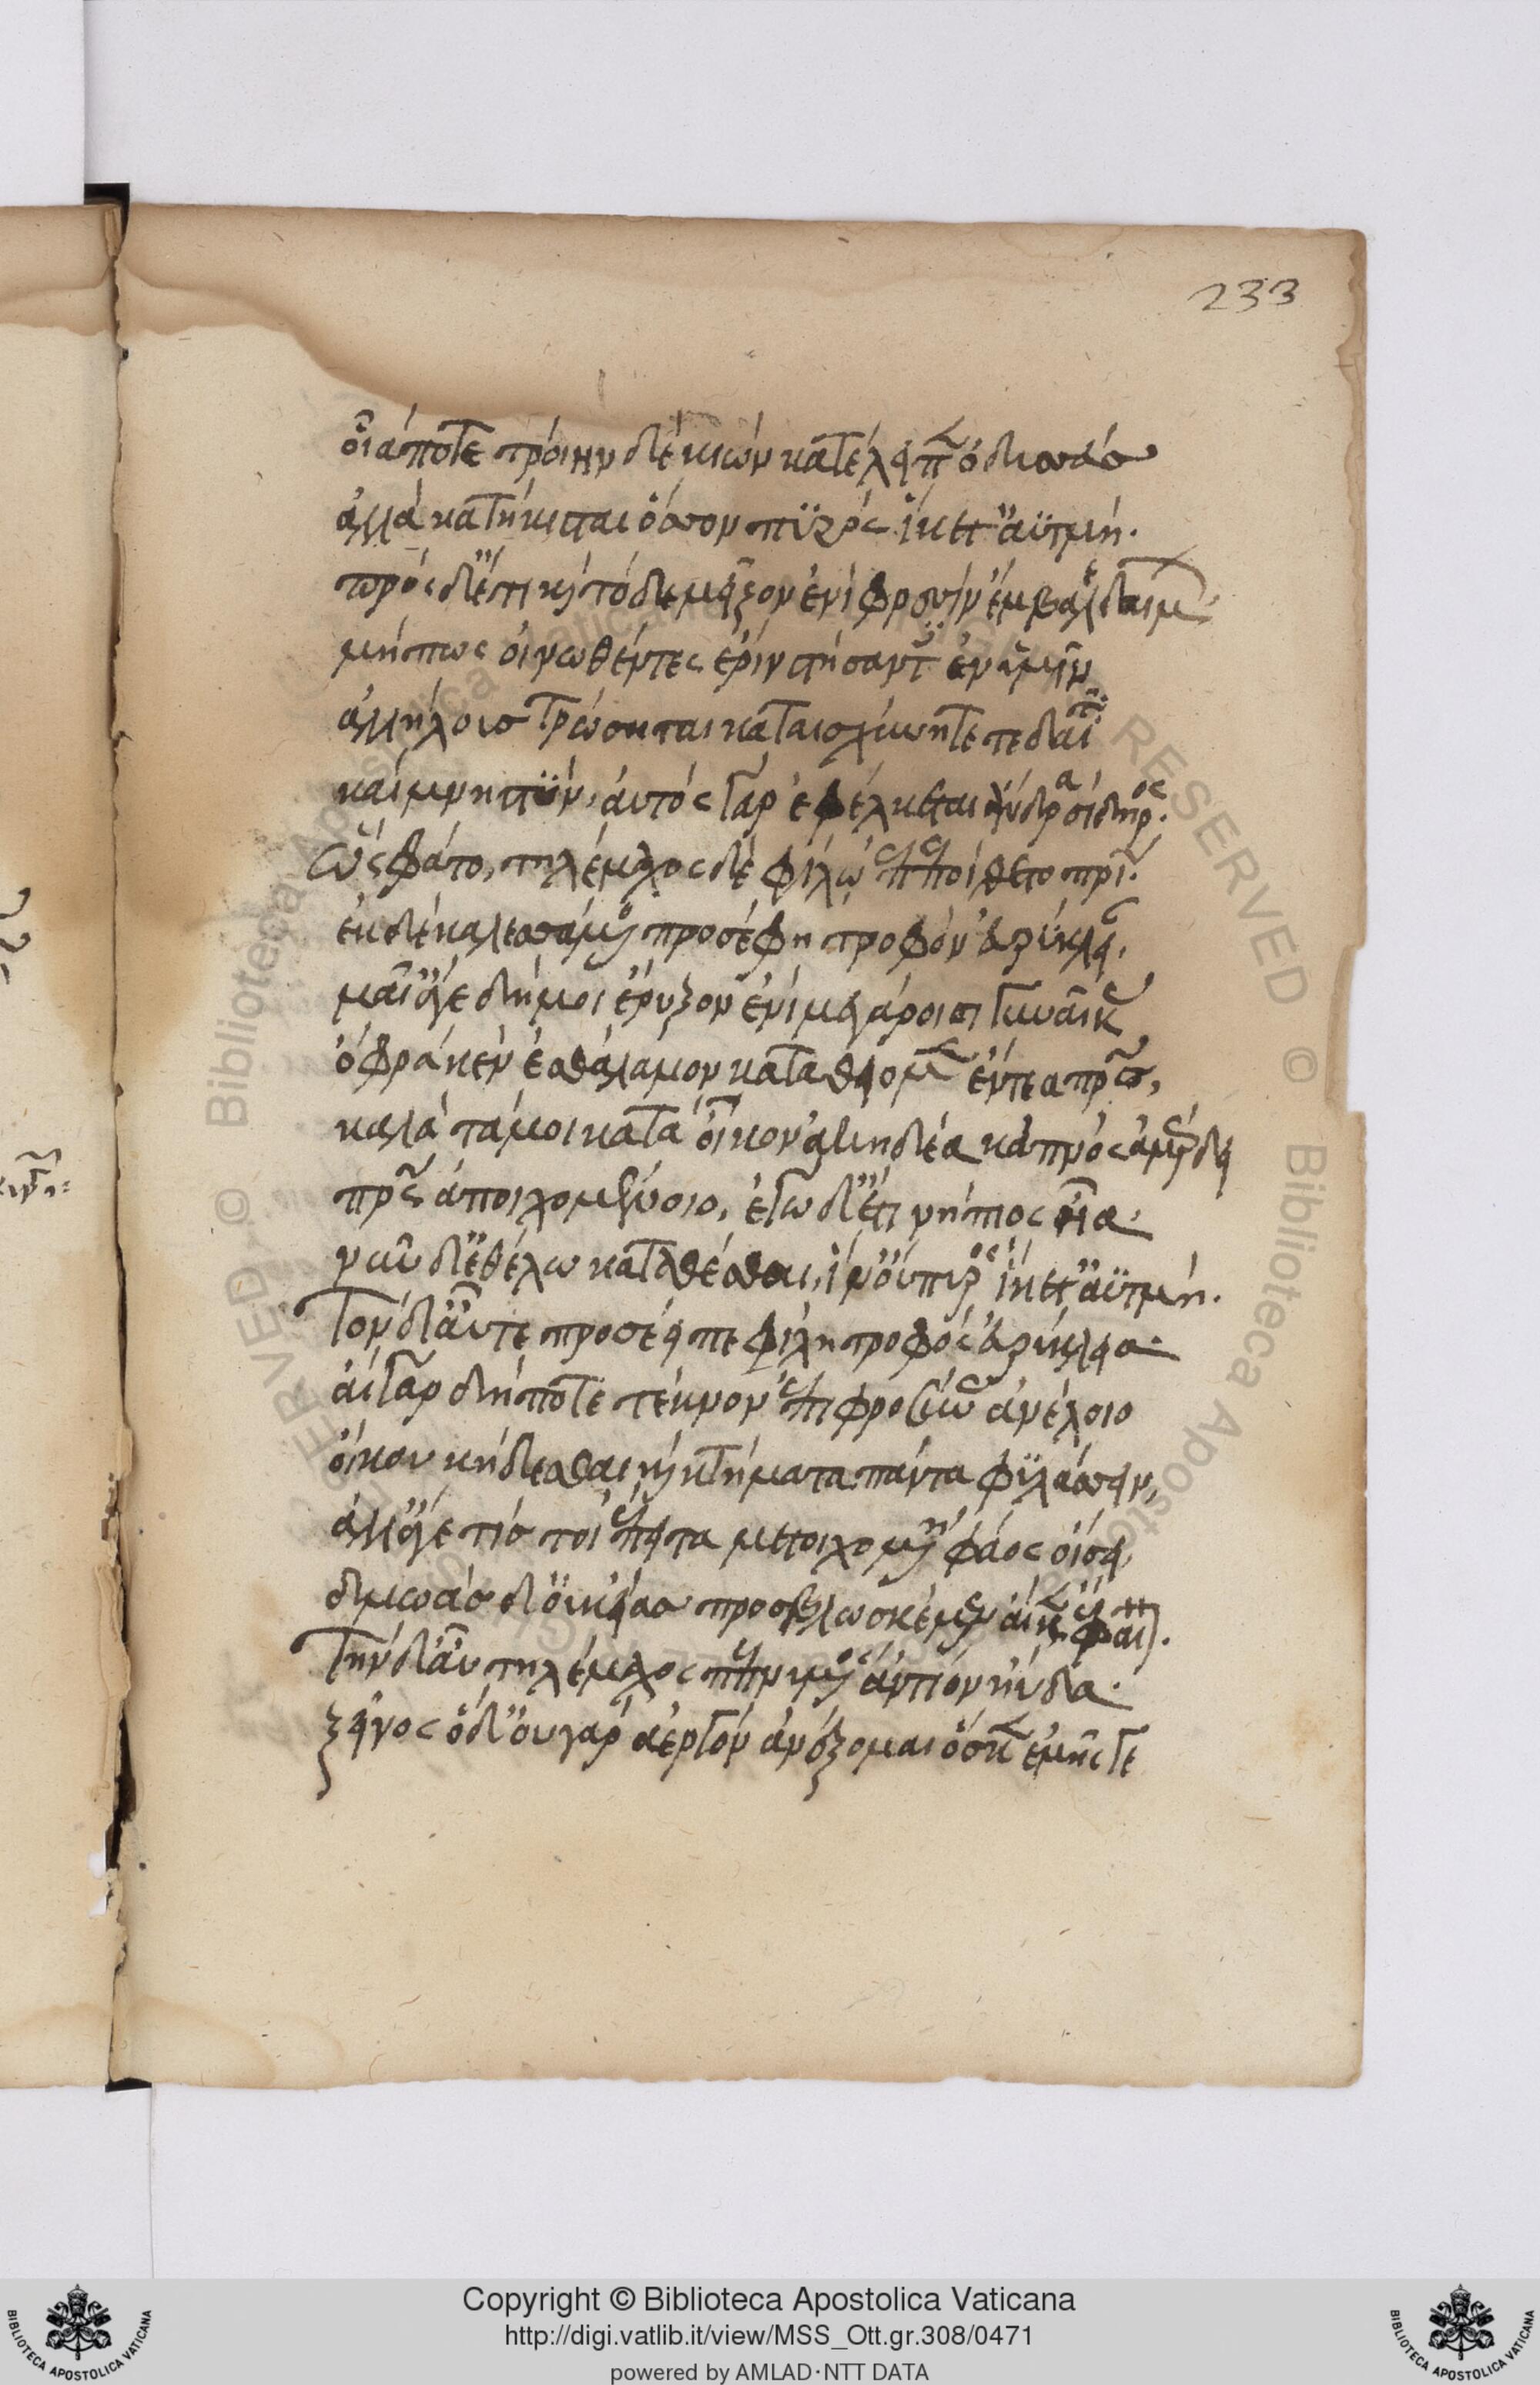 233
οἷά ποτε τροίην δὲ κιὼν κατέλειπεν ὀδυσσεὺς
ἀλλὰ κατήκισται ὅσσον πῦρὸς ἵκετ' ἀϋτμή.
πρὸς δ' ἔτι καὶ τόδε μεῖζον ἐνὶ φρεσὶν ἔμβαλε δαίμων
μήπως οἰνωθέντες ἔριν στήσαντες ἐν ὑμῖν
ἀλλήλους τρώσηται καταισχύνητέ τε δαῖτα
καὶ μνηστὺν, αὐτὸς γὰρ ἐφέλκεται ἄνδρα σίδηρος.
ὣς φάτο, τηλέμαχος δὲ φίλω ἐπεπείθετο πατρί.
ἐκ δὲ καλεσσάμενος προσέφη τροφὸν εὐρύκλειαν,
μαῖ' ἄγε δή μοι ἔρυξον ἐνὶ μεγάροισι γυναῖκας
ὄφρά κεν ἐς θάλαμον καταθείομαι ἔντεα πατρὸς,
καλὰ τά μοι κατὰ οἶκον ἀκηδέα καπνὸς ἀμέρδει
πατρὸς ἀποιχομένοιο, ἐγὼ δ' ἔτι νήπιος ἦα.
νῦν δ' ἐθέλω καταθέσθαι, ἵν' οὐ πυρὸς ἵκετ' ἀϋτμή.
τὸν δ' αὖτε προσέειπε φίλη τροφὸς εὐρύκλεια.
αἲ γὰρ δή ποτε τέκνον ἐπιφροσύνας ἀνέλοιο
οἴκου κήδεσθαι καὶ κτήματα πάντα φυλάσσειν,
ἀλλ' ἄγε τίς τοι ἔπειτα μετοιχομένη φάος οἴσει
δμωὰς δ' οὐκ εἴας προβλωσκέμεν αἵ κεν ἔφαινον.
τὴν δ' αὖ τηλέμαχος πεπνυμένος ἀντίον ηὔδα.
ξεῖνος ὅδ' οὐ γὰρ ἀεργὸν ἀνέξομαι ὅς κεν ἐμῆς γε
Copyright © Biblioteca Apostolica Vaticana
http://digi.vatlib.it/view/MSS_Ott.gr.308/0471
powered by AMLAD·NTT DATA